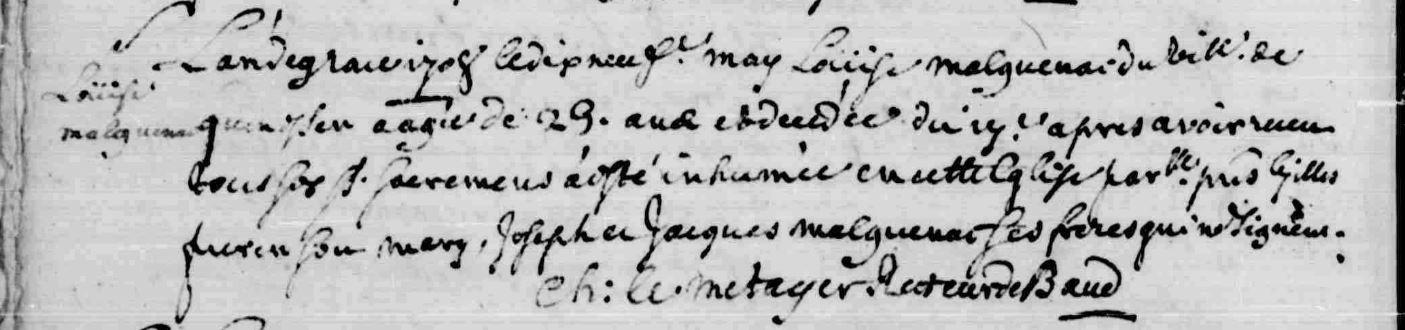 Louise
malguenac
L'an de grace 1708 le dix neuf.e may Loüise malguenac du vill.e de
aagée de 29. ans et decedée du 17.e apres avoir receu
tous ses s.ts sacremens a esté inhumée en cette Eglise par.lle pñs Gilles
son mary, Joseph et Jacques malguenac ses freres qui ne signent.
Ch: le metayer Recteur de Baud